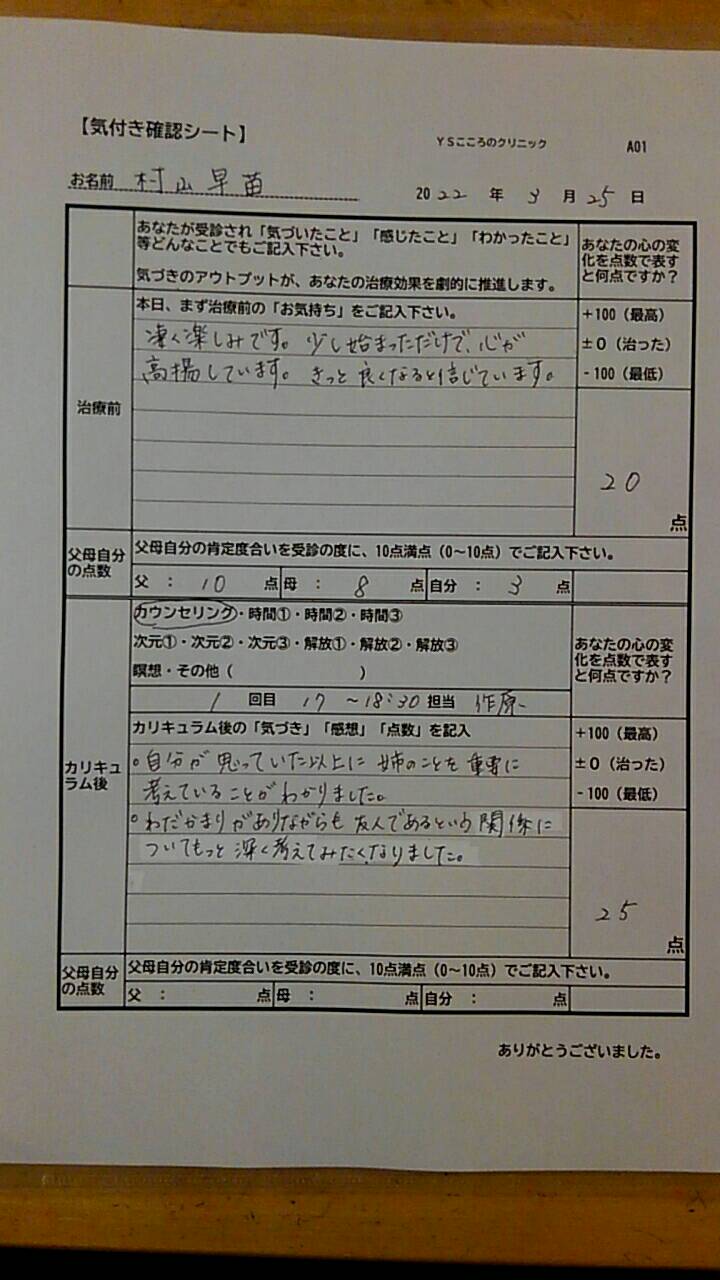 【気付き確認シート】
YSこころのクリニック
A01
お名前 村山早苗
2022年3月25日
あなたが受診され「気づいたこと」「感じたこと」「わかったこと」
等どんなことでもご記入下さい。
気づきのアウトプットが、あなたの治療効果を劇的に推進します。
あなたの心の変
化を点数で表す
と何点ですか？
治療前
本日、まず治療前の「お気持ち」をご記入下さい。
凄く楽しみです。少し始まっただけで、心が
高揚しています。きっと良くなると信じています。
+100（最高）
±0（治った）
-100（最低）
20
点
父母自分
の点数
父母自分の肯定度合いを受診の度に、10点満点（0～10点）でご記入下さい。
父：10点 母：8点 自分：3点
カリキュ
ラム後
カウンセリング・時間①・時間②・時間③
次元①・次元②・次元③・解放①・解放②・解放③
瞑想・その他（ ）
1回目 17～18:30 担当 作原
あなたの心の変
化を点数で表す
と何点ですか？
カリキュラム後の「気づき」「感想」「点数」を記入
○自分が思っていた以上に姉のことを重要に
考えていることがわかりました。
○わだかまりがありながらも友人であるという関係に
ついてもっと深く考えてみたくなりました。
+100（最高）
±0（治った）
-100（最低）
25
点
父母自分
の点数
父母自分の肯定度合いを受診の度に、10点満点（0～10点）でご記入下さい。
父： 点 母： 点 自分： 点
ありがとうございました。